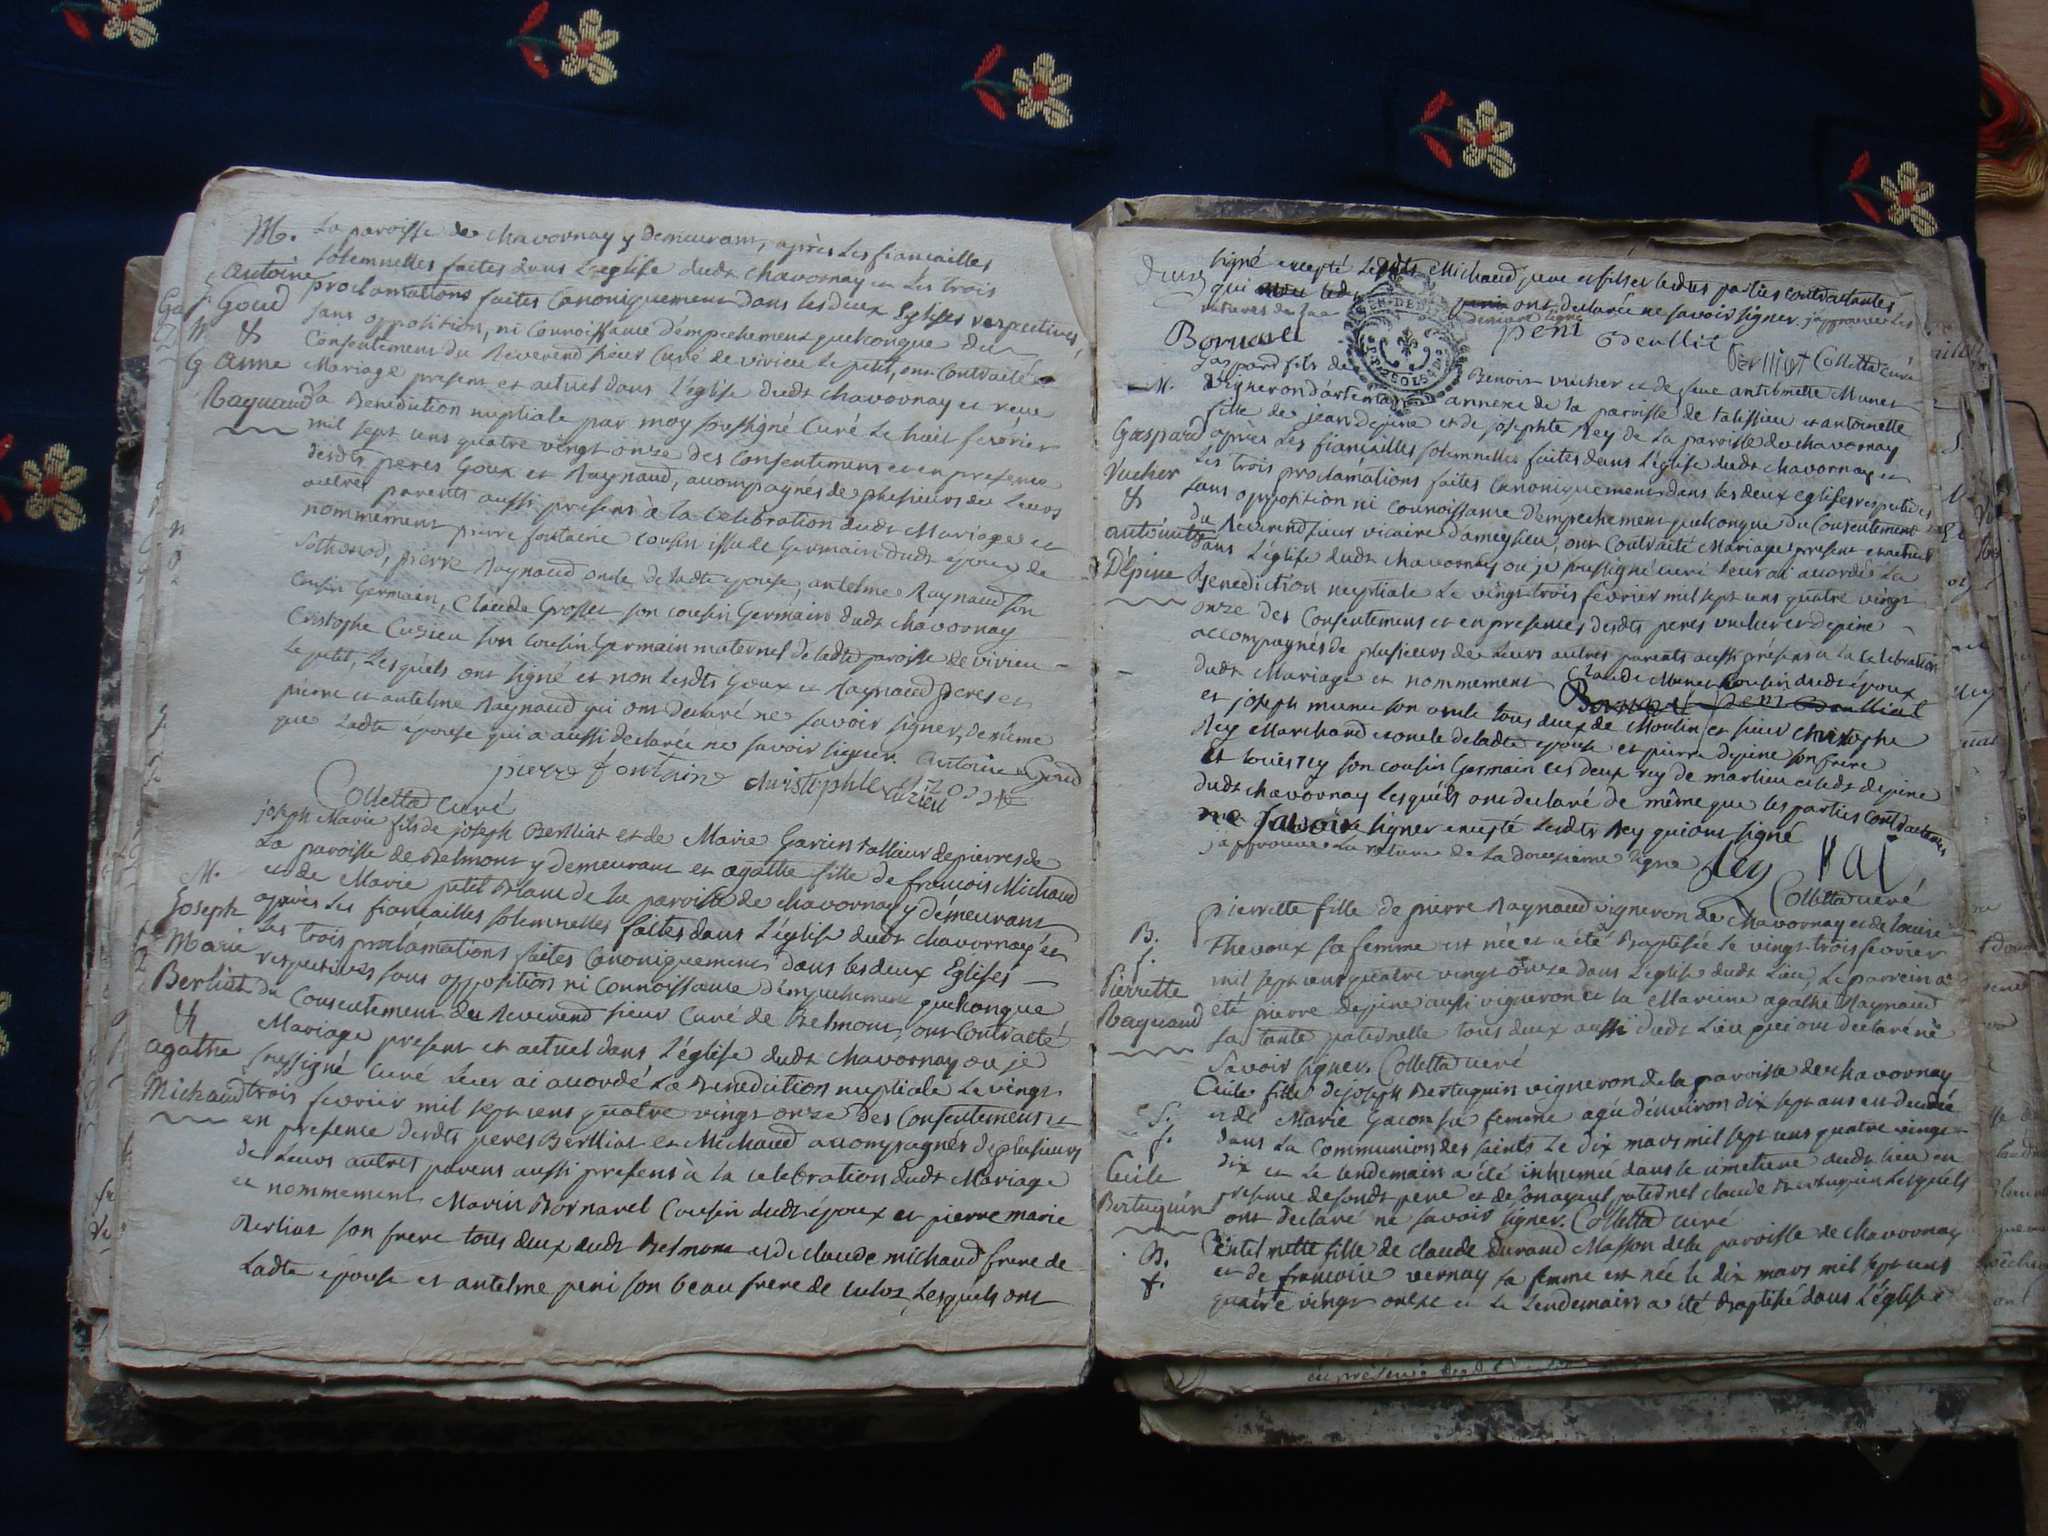 M.
Antoine
Goud
&
Anne
Raynaud
La paroisse de chavornay y demeurant, après les fiancailles
solemnelles faites dans l'eglise dudt chavornay et les trois
proclamations faites Canoniquement dans les deux Eglises respectives,
sans opposition, ni Connoissance d'empechement quelconque du
Consentement du Reverend sieur Curé de vivieu le petit, ont Contraité
Mariage present et actuel dans l'église dudt chavornay et reçu
la Benediction nuptiale par moy soussigné Curé le huit fevrier
mil sept cens quatre vingt onze des Consentemens et en presence
desdts peres Goux et Raynaud, accompagnés de plusieurs de leurs
autres parents aussi presens à la Celebration dudt Mariage et
nommement pierre fontaine cousin issu de Germain dudt époux de
Sothonod, pierre Raynaud oncle de ladte epouse, antelme Raynaud son
Cousin Germain, Claude Grosset son cousin Germain dudt chavornay
Cristophe Cuzieu son cousin Germain maternel de ladte paroisse de vivieu
le petit, lesquels ont signé et non lesdts Goux et Raynaud peres et
pierre et antelme Raynaud qui ont declaré ne savoir signer, de même
que ladte épouse qui a aussi declarée ne savoir signer. Antoine Goud
pierre fontaine christophle cuzieu
Colletta curé
M.
Joseph
Marie
Berliat
&
agathe
Michaud
joseph Marie fils de joseph Berlliat et de Marie Garin tallieur de pierres de
la paroisse de Belmont y demeurant et agathe fille de francois Michaud
et de Marie petit Blanc de la paroisse de chavornay y demeurant
après les fiancailles solemnelles faites dans l'église dudt chavornay et
les trois proclamations faites Canoniquement dans les deux Eglises
respectives sans opposition ni Connoissance d'empechement quelconque
du Consentement du Reverend sieur Curé de Belmont, ont Contracté
Mariage present et actuel dans l'église dudt chavornay ou je
soussigné curé leur ai accordé la Benediction nuptiale le vingt
trois fevrier mil sept cens quatre vingt onze des Consentemens et
en presence desdts peres Berlliat et Michaud accompagnés de plusieurs
de leurs autres parens aussi presens à la celebration dudt Mariage
et nommement Marin Bornarel Cousin dudt époux et pierre marie
Berliat son frere tous deux dudt Belmont et de claude michaud frere de
ladte épouse et antelme peni son beau frere de culoz, lesquels ont
signé excepté lesdts Michaud pere et fils et lesdtes parties contractantes
qui ont declarée ne savoir signer. j'approuve les
Bornarel peni Berlliat
Berlliat Colletta curé
M.
Gaspard
Vucher
&
antoinette
Dépine
Gaspard fils de Benoit vucher et de feue antelmette Munet
vigneron d'artemare annexe de la paroisse de talissieu et antoinette
fille de jean depine et de josephte Rey de la paroisse de chavornay
après les fiancailles solemnelles faites dans l'église dudt chavornay et
les trois proclamations faites Canoniquement dans les deux eglises respectives
sans opposition ni connoissance d'empechement quelconque du Consentement
du Reverend sieur vicaire d'ameyzieu, ont Contraité Mariage present et actuel
dans l'église dudt chavornay ou je soussigné curé leur ai accordé la
Benediction nuptiale le vingt trois fevrier mil sept cens quatre vingt
onze des Consentemens et en presences desdts peres vucher et depine
accompagnés de plusieurs de leurs autres parents aussi présens a la celebration
dudt Mariage et nommement Claude Munet Cousin dudt époux
et joseph munet son oncle tous deux de Moulin et sieur Christophe
Rey Marchand et oncle de ladte epouse et pierre depine son frere
et louis rey son cousin Germain les deux rey de marlieu et ledt depine
dudt chavornay lesquels ont declaré de même que les parties contractantes
ne savoir signer excepté lesdts Rey qui ont signé
j'approuve la rature de la douzieme ligne Rey
Colletta curé
B.
f.
Pierrette
Raynaud
pierrette fille de pierre Raynaud vigneron de chavornay et de louise
Thevoux sa femme est née et a été Baptisée le vingt trois fevrier
mil sept cens quatre vingt onze dans l'eglise dudt lieu, le parrein a
été pierre depine aussi vigneron et la Mareine agathe Raynaud
sa tante paternelle tous deux aussi dudt lieu qui ont declaré ne
savoir signer. Colletta curé
S.
f.
Cecile
Bertuguin
Cecile fille de joseph Bertuguin vigneron de la paroisse de chavornay
et de Marie Gacon sa femme agée d'environ dix sept ans est decedée
dans la Communion des saints le dix mars mil sept cens quatre vingt
dix et le lendemain a été inhumée dans le cimetiere dudt lieu en
presence de sondt pere et de son ayeul paternel claude Bertuguin lesquels
ont declaré ne savoir signer. Colletta curé
B.
f.
fille de claude durand Masson de la paroisse de chavornay
et de francoise vernay sa femme est née le dix mars mil sept cens
quatre vingt onze et le lendemain a été Baptisée dans l'église